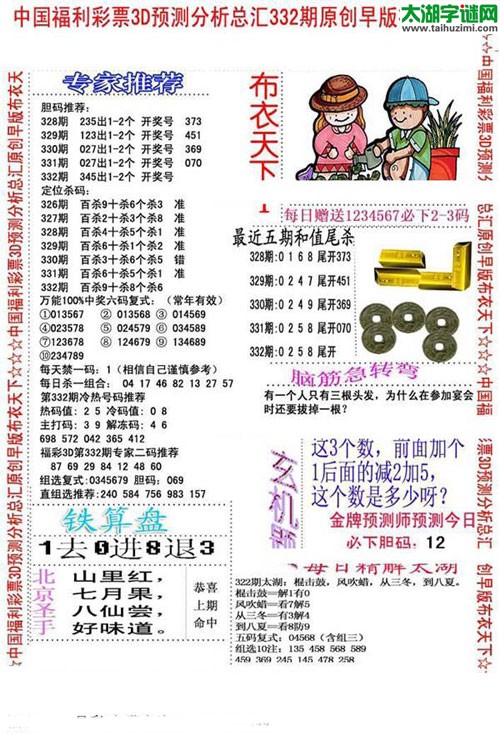 中国福利彩票3D预测分析总汇332期原创早版
太湖字谜网
www.taihuzimi.com
专家推荐
胆码推荐:
328期 235出1-2个 开奖号 373
329期 123出1-2个 开奖号 451
330期 027出1-2个 开奖号 369
331期 027出1-2个 开奖号 070
332期 345出1-2个 开奖号
定位杀码:
326期 百杀9十杀6个杀3 准
327期 百杀6十杀5个杀8 准
328期 百杀4十杀5个杀1 准
329期 百杀0十杀1个杀3 准
330期 百杀3十杀6个杀5 错
331期 百杀6十杀1个杀1 准
332期 百杀9十杀8个杀6
万能100%中奖六码复式:(常年有效)
①013567 ②013568 ③014569
④023578 ⑤024579 ⑥034589
⑦123678 ⑧124679 ⑨134689
⑩234789
每天禁一码: 1(相信自己谨慎参考)
每日杀一组合: 04 17 46 82 13 27 57
第332期冷热号码推荐
热码值: 2 5 冷码值: 0 8
主打码: 3 9 解冻码: 4 6
698 572 042 365 412
福彩3D第332期专家二码推荐
87 69 29 84 12 48 60
组选复式:0345679 胆码: 069
直组选推荐:240 584 756 983 157
铁算盘
1去0进8退3
北京圣手
山里红,
七月果,
八仙尝,
好味道。
恭喜
上期
命中
布衣天下
每日赠送1234567必下2-3码
最近五期和值尾杀
328期:0 1 6 8 尾开373
329期:0 2 4 7 尾开451
330期:0 2 4 9 尾开369
331期:0 2 5 8 尾开070
332期:0 2 5 8 尾开
脑筋急转弯
有一个人只有三根头发,为什么在参加宴会
时还要拔掉一根?
玄机
这3个数,前面加个
1后面的减2加5,
这个数是多少呀?
金牌预测师预测今日
必下胆码: 12
每日精解太湖
322期太湖: 棍击鼓,风吹蜡,从三冬,到八夏。
棍击鼓==解1有0
风吹蜡==看7解5
从三冬==看3有4
到八夏==看8防9
五码复式: 04568 (含组三)
组选10注: 135 458 568 589
459 369 245 145 478 258
中国福利彩票3D预测分析总汇原创早版布衣天下☆☆☆中国福利彩票3D预测分析总汇原创早版布衣天